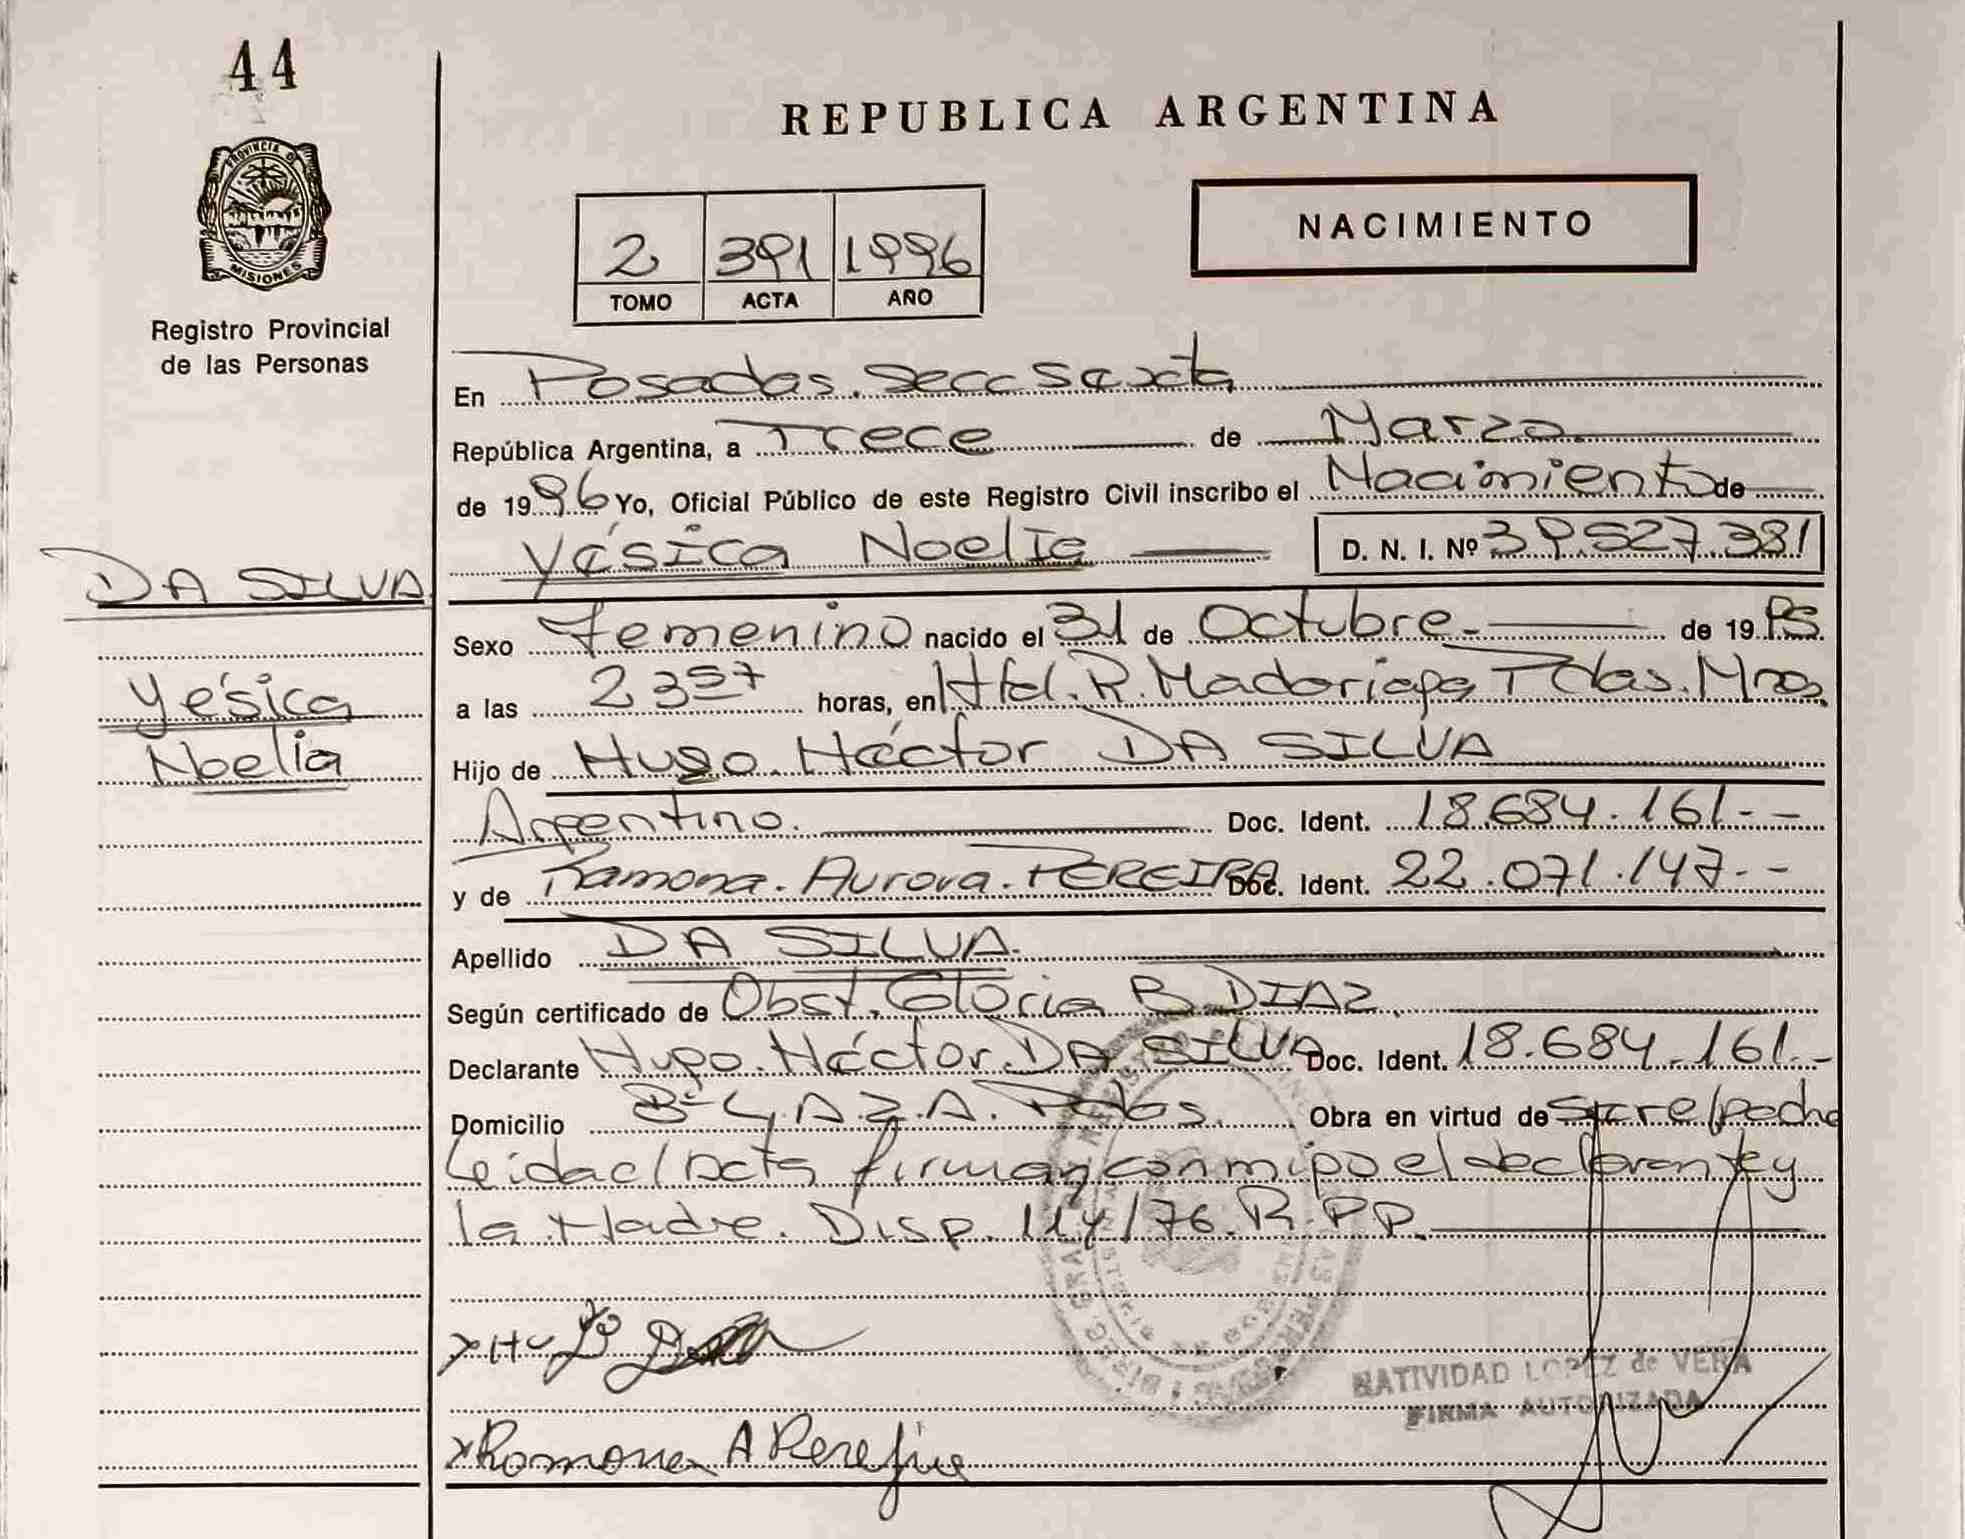 44
PROVINCIA DE
MISIONES
Registro Provincial
de las Personas
REPUBLICA ARGENTINA
2 391 1996
TOMO ACTA AÑO
NACIMIENTO
En Posadas. Secc Sexta
República Argentina, a Trece de Marzo
de 1996 Yo, Oficial Público de este Registro Civil inscribo el Nacimiento de
Yésica Noelia D. N. I. Nº 39.527.381
DA SILVA
Yésica
Noelia
Sexo Femenino nacido el 31 de Octubre.- de 1995
a las 23 57 horas, en Htal. R. Madariaga Pdas. Mnes.
Hijo de Hugo. Héctor DA SILVA
Argentino. Doc. Ident. 18.684.161.--
y de Ramona. Aurora. PEREIRA Doc. Ident. 22.071.147.--
Apellido DA SILVA.
Según certificado de Obst. Gloria B. DIAZ.
Declarante Hugo. Héctor DA SILVA Doc. Ident. 18.684.161.-
Domicilio Bº L.A.Z.A. Pdas. Obra en virtud de
Leida el Acta firman conmigo el declarante y
la Madre. Disp. 114/76. R.P.P.
Ramona A Pereira
NATIVIDAD LOPEZ de VERA
FIRMA AUTORIZADA